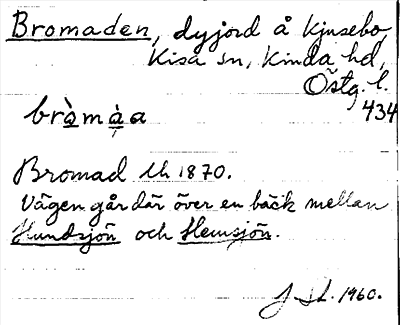 Bromaden, dyjord å Kjusebo,
Kisa sn, Kinda hd,
Östg. l.
434
bròmàa
Bromad Uh 1870.
Vägen går där över en bäck mellan
Hundsjön och Hemsjön.
1960.